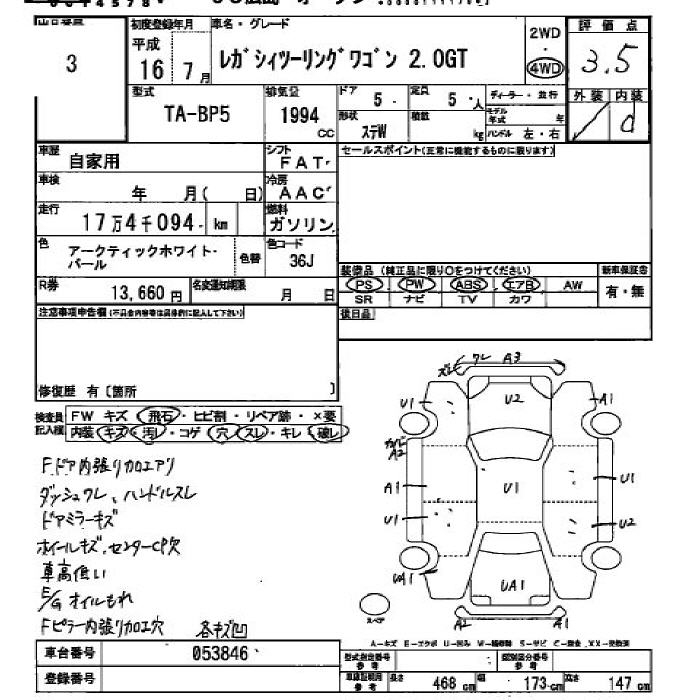 出品番号 初度登録年月 車名・グレード 2WD 評価点
3 平成 16 7月 レガシィツーリングワゴン 2.0GT ・ 4WD 3.5
型式 排気量 ドア 5 定員 5人 ディーラー・並行 外装 内装
TA-BP5 1994 CC 形状 ステW 積載 kg モデル年式 年 ハンドル 左・右 d
車歴 自家用 シフト FAT セールスポイント(正常に機能するものに限ります)
車検 年 月( 日) 冷房 AAC
走行 17万4千094 km 燃料 ガソリン
色 アークティックホワイト・パール 色替 色コード 36J
装備品(純正品に限り○をつけてください) 新車保証書
R券 13,660円 名変通知期限 月 日 PS PW ABS エアB AW 有・無
SR ナビ TV カワ
注意事項申告欄(不具合内容等は具体的に記入して下さい) 後日品
修復歴 有〔箇所 〕
検査員記入欄 FW キズ・飛石・ヒビ割・リペア跡・×要
内装・キズ・汚レ・コゲ・穴・スレ・キレ・破レ
F.ドア内張り加工アリ
ダッシュワレ、ハンドルスレ
ドアミラーキズ
ホイールキズ、センターCP欠
車高低い
E/G オイルもれ
Fピラー内張り加工穴 各キズ凹
ズレ ワレ A3
U1 U2 A1
カバー A2
A1 U1 U1
U1 U2
UA1 UA1
スペア A2 A1
A-キズ E-エクボ U-凹み W-補修跡 S-サビ C-腐食 XX-交換済
車台番号 053846
型式指定番号 参考 類別区分番号 参考
登録番号
車庫証明用 参考 長さ 468 cm 幅 173 cm 高さ 147 cm